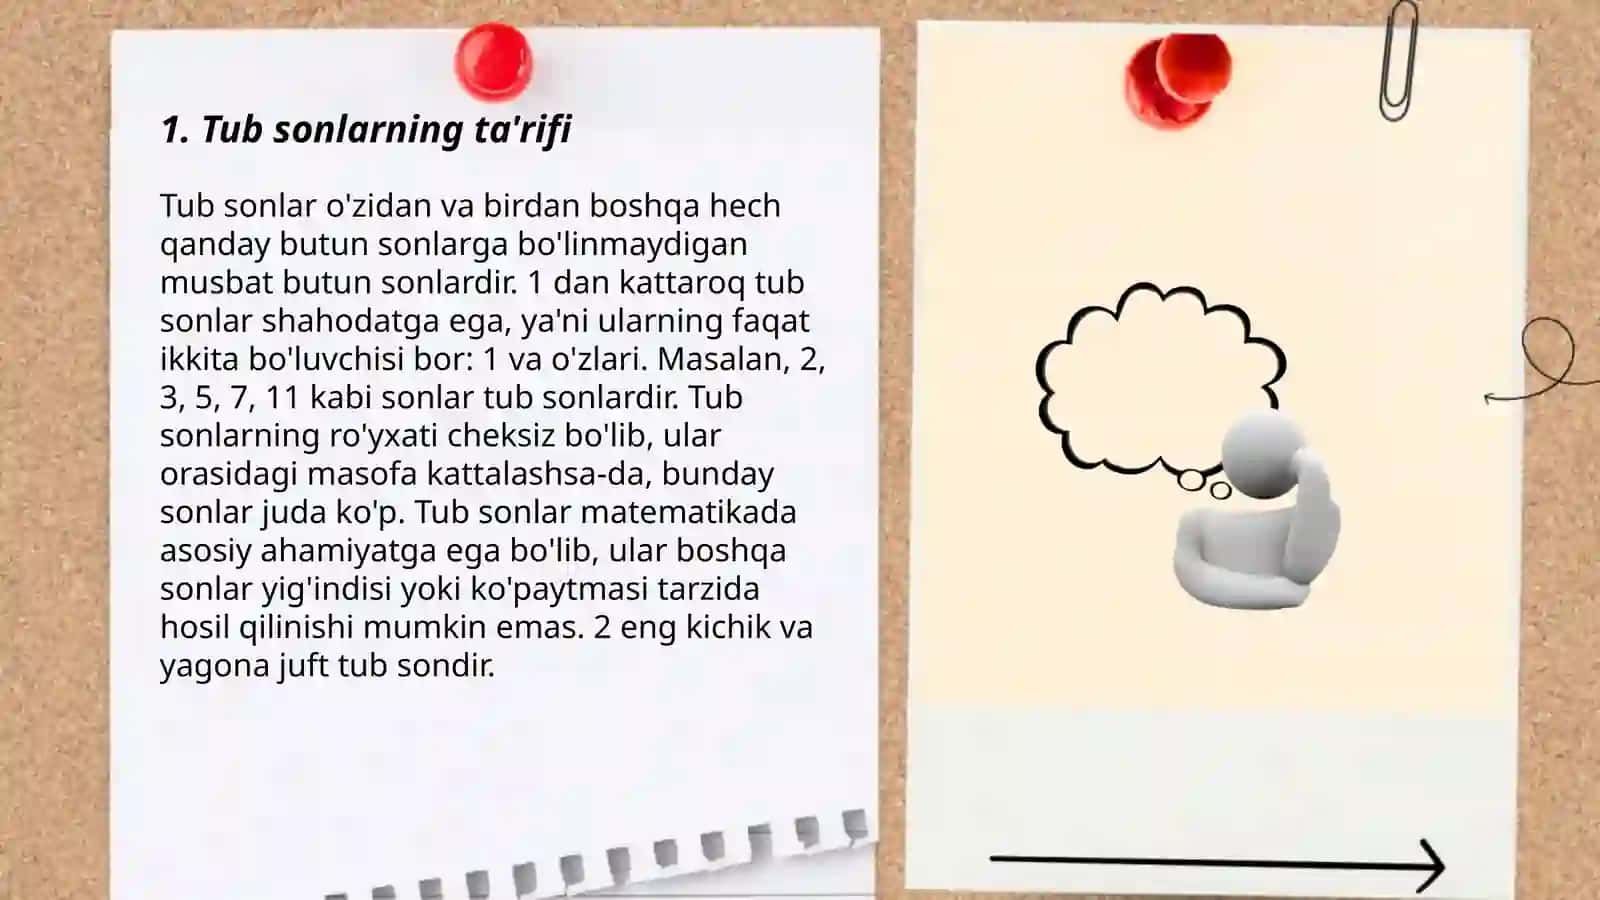 1. Tub sonlarning ta'rifi
Tub sonlar o'zidan va birdan boshqa hech
qanday butun sonlarga bo'linmaydigan
musbat butun sonlardir. 1 dan kattaroq tub
sonlar shahodatga ega, ya'ni ularning faqat
ikkita bo'luvchisi bor: 1 va o'zlari. Masalan, 2,
3, 5, 7, 11 kabi sonlar tub sonlardir. Tub
sonlarning ro'yxati cheksiz bo'lib, ular
orasidagi masofa kattalashsa-da, bunday
sonlar juda ko'p. Tub sonlar matematikada
asosiy ahamiyatga ega bo'lib, ular boshqa
sonlar yig'indisi yoki ko'paytmasi tarzida
hosil qilinishi mumkin emas. 2 eng kichik va
yagona juft tub sondir.